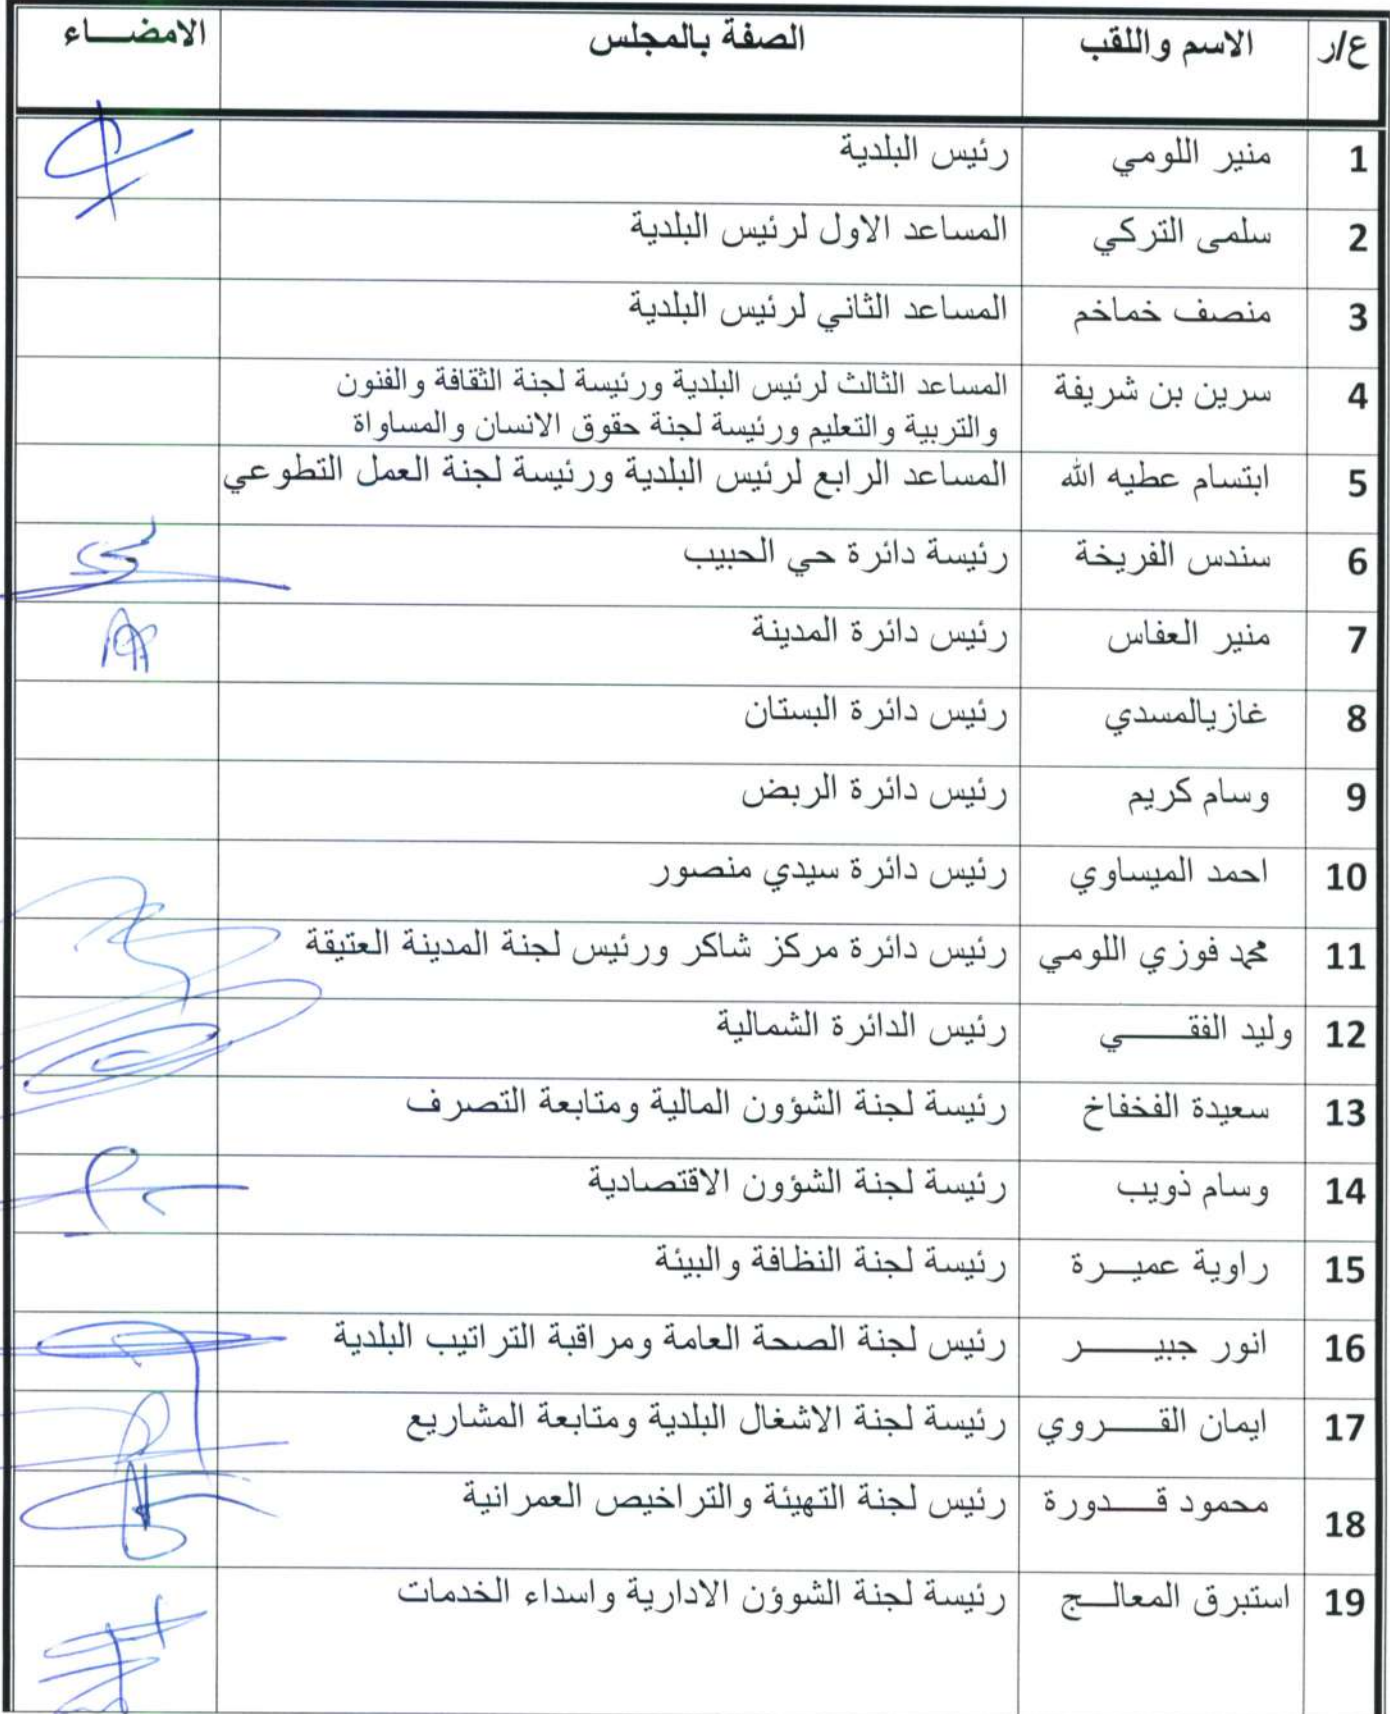 ع/ر الاسم واللقب الصفة بالمجلس الامضــاء
1 منير اللومي رئيس البلدية
2 سلمى التركي المساعد الاول لرئيس البلدية
3 منصف خماخم المساعد الثاني لرئيس البلدية
4 سرين بن شريفة المساعد الثالث لرئيس البلدية ورئيسة لجنة الثقافة والفنون
والتربية والتعليم ورئيسة لجنة حقوق الانسان والمساواة
5 ابتسام عطيه الله المساعد الرابع لرئيس البلدية ورئيسة لجنة العمل التطوعي
6 سندس الفريخة رئيسة دائرة حي الحبيب
7 منير العفاس رئيس دائرة المدينة
8 غازيالمسدي رئيس دائرة البستان
9 وسام كريم رئيس دائرة الربض
10 احمد الميساوي رئيس دائرة سيدي منصور
11 محمد فوزي اللومي رئيس دائرة مركز شاكر ورئيس لجنة المدينة العتيقة
12 وليد الفقــــي رئيس الدائرة الشمالية
13 سعيدة الفخفاخ رئيسة لجنة الشؤون المالية ومتابعة التصرف
14 وسام ذويب رئيسة لجنة الشؤون الاقتصادية
15 راوية عميــرة رئيسة لجنة النظافة والبيئة
16 انور جبيــــر رئيس لجنة الصحة العامة ومراقبة التراتيب البلدية
17 ايمان القــــروي رئيسة لجنة الاشغال البلدية ومتابعة المشاريع
18 محمود قــــدورة رئيس لجنة التهيئة والتراخيص العمرانية
19 استبرق المعالــج رئيسة لجنة الشوؤن الادارية واسداء الخدمات